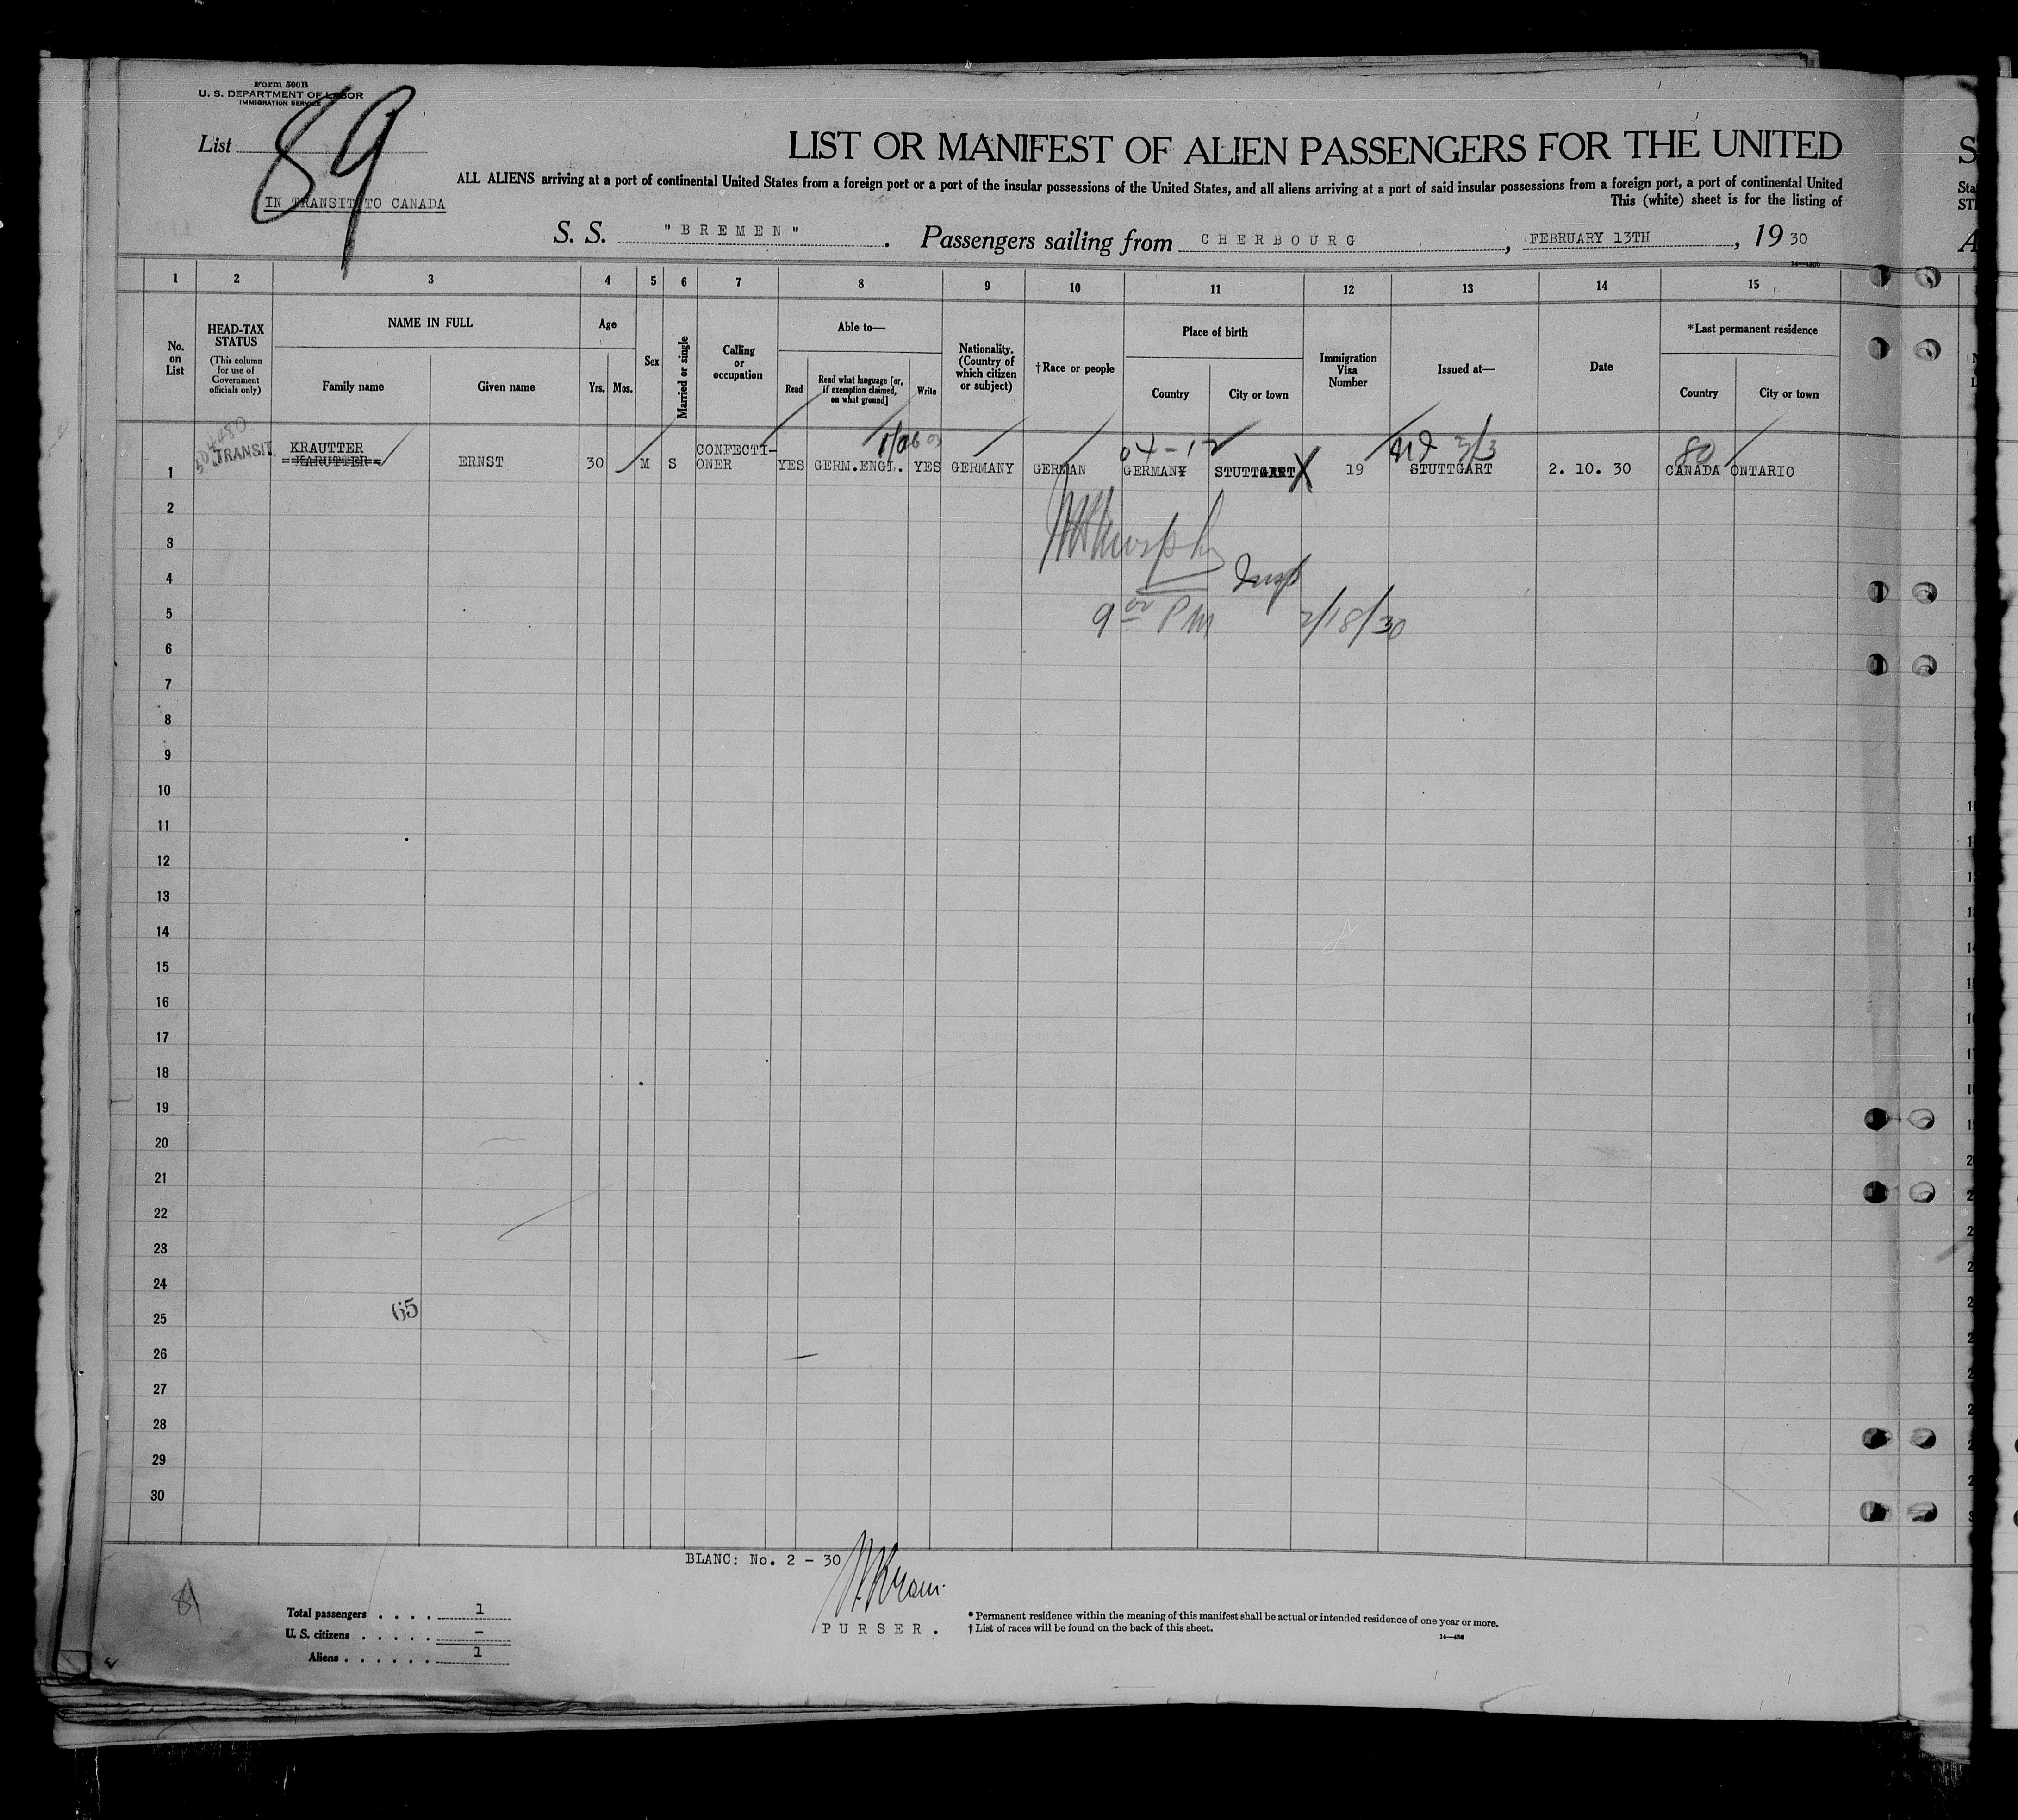 Form 500B
U. S. DEPARTMENT OF LABOR
IMMIGRATION SERVICE
List 89
IN TRANSIT TO CANADA
LIST OR MANIFEST OF ALIEN PASSENGERS FOR THE UNITED
ALL ALIENS arriving at a port of continental United States from a foreign port or a port of the insular possessions of the United States, and all aliens arriving at a port of said insular possessions from a foreign port, a port of continental United
This (white) sheet is for the listing of
S. S. "BREMEN". Passengers sailing from CHERBOURG, FEBRUARY 13TH, 1930
1 2 3 4 5 6 7 8 9 10 11 12 13 14 15
No. on List
HEAD-TAX STATUS
(This column for use of Government officials only)
NAME IN FULL
Family name Given name
Age
Yrs. Mos.
Sex
Married or single
Calling or occupation
Able to—
Read
Read what language [or, if exemption claimed, on what ground]
Write
Nationality. (Country of which citizen or subject)
†Race or people
Place of birth
Country City or town
Immigration Visa Number
Issued at—
Date
*Last permanent residence
Country City or town
04-12
3/3
80
1 TRANSIT KRAUTTER KARUTTER ERNST 30 M S CONFECTIONER YES GERM.ENGL. YES GERMANY GERMAN GERMANY STUTTGART X 19 STUTTGART 2. 10. 30 CANADA ONTARIO
2
3
Insp
4
9 00 PM 2/18/30
5
6
7
8
9
10
11
12
13
14
15
16
17
18
19
20
21
22
23
24
65
25
26
27
28
29
30
BLANC: No. 2 - 30
PURSER.
81
Total passengers . . . . 1
U. S. citizens . . . . . –
Aliens . . . . . . 1
* Permanent residence within the meaning of this manifest shall be actual or intended residence of one year or more.
† List of races will be found on the back of this sheet.